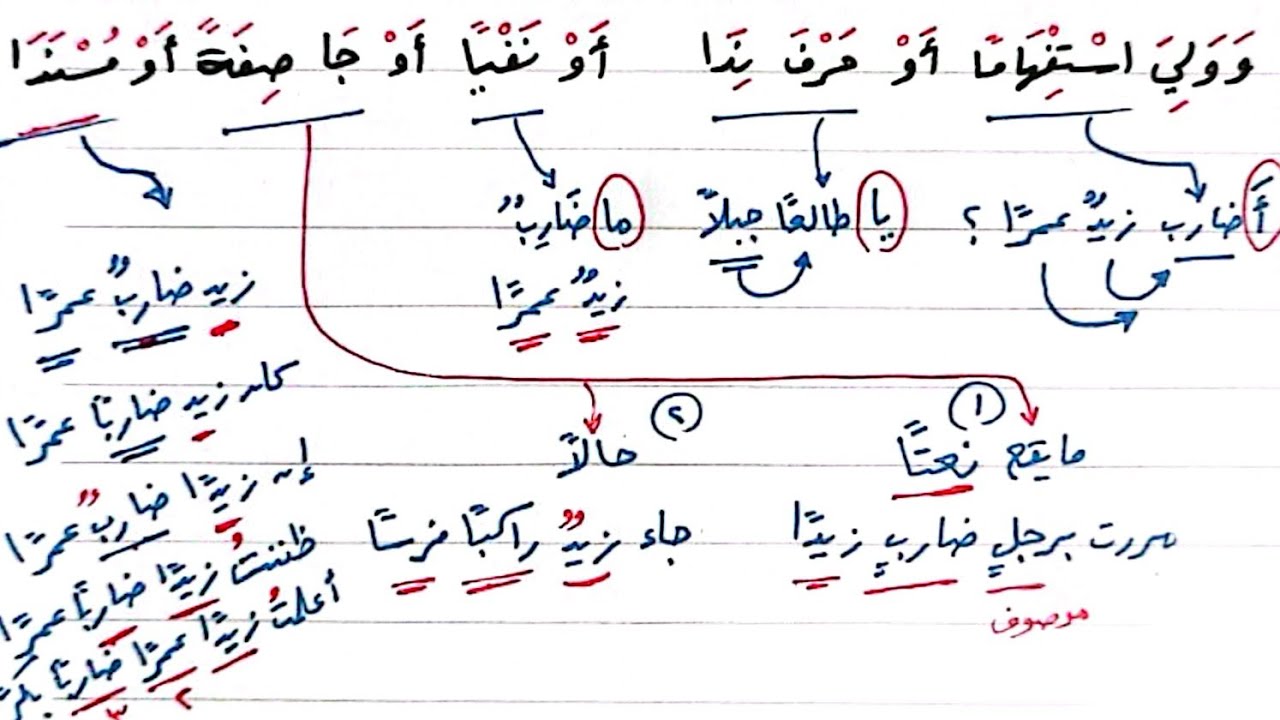 وَوَلِيَ اسْتِفْهَامًا أَوْ حَرْفَ نِدَا أَوْ نَفْيًا أَوْ جَا صِفَةً أَوْ مُسْنَدَا
أَضارب زيدٌ عمرًا ؟
يا طالعًا جبلاً
ما ضَارِبٌ
زيدٌ عمرًا
زيد ضاربٌ عمرًا
كان زيد ضاربًا عمرًا
إن زيدًا ضاربٌ عمرًا
ظننتُ زيدًا ضاربًا عمرًا
أعلمتُ زيدًا عمرًا ضاربًا
٢
٣
١
ما يقع نعتًا
مررت برجلٍ ضاربٍ زيدًا
موصوف
٢
حالاً
جاء زيدٌ راكبًا فرسًا